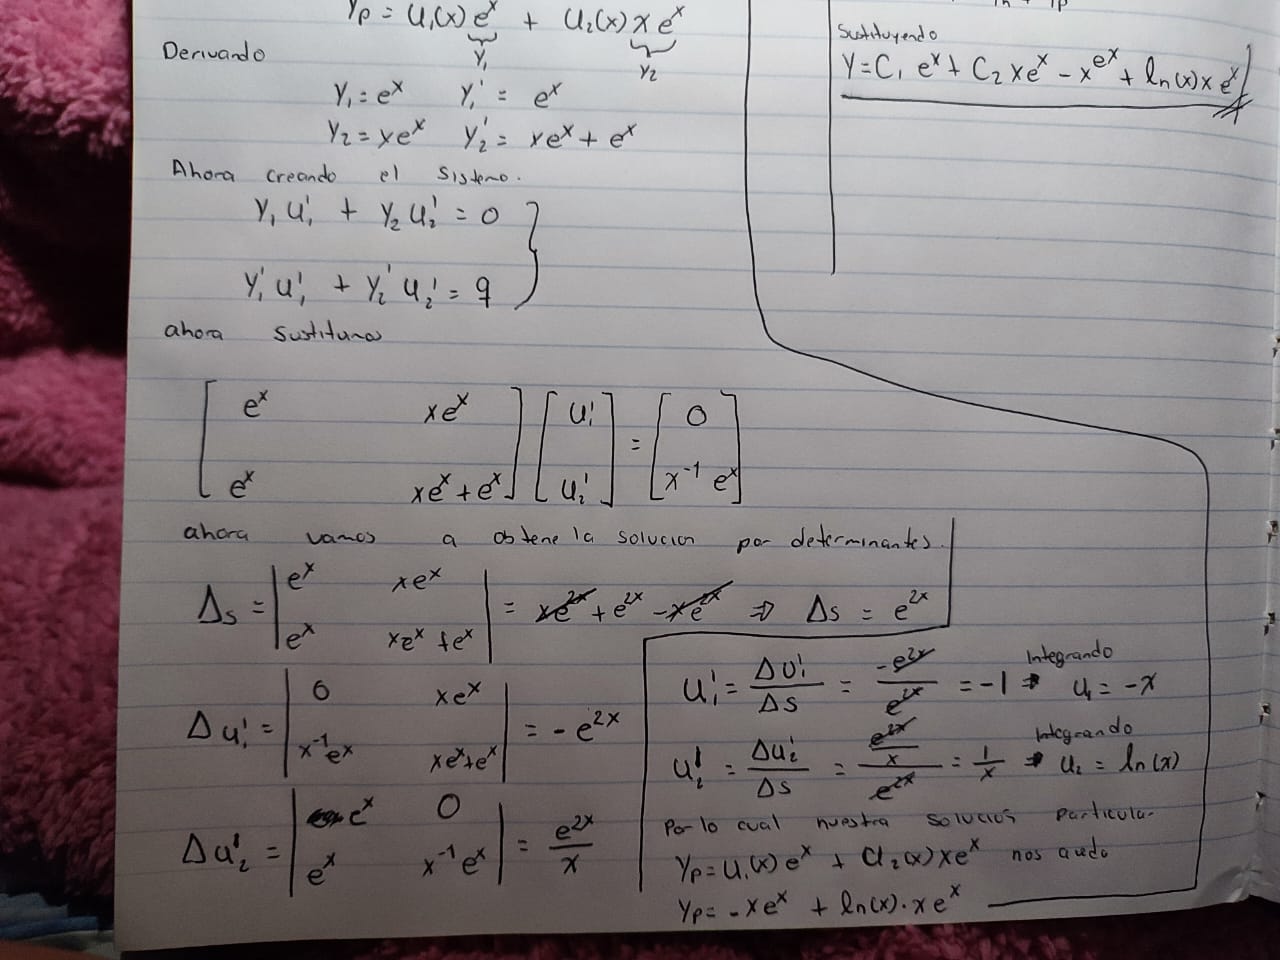 Yp = U₁(x) eˣ + U₂(x) x eˣ
Y₁ Y₂
Derivando
Y₁ = eˣ Y₁' = eˣ
Y₂ = xeˣ Y₂' = xeˣ + eˣ
Ahora creando el Sistema.
Y₁ U₁' + Y₂ U₂' = 0
Y₁' U₁' + Y₂' U₂' = g
ahora
[ eˣ xeˣ ] [ U₁' ] = [ 0 ]
[ eˣ xeˣ + eˣ ] [ U₂' ] = [ x⁻¹ eˣ ]
ahora vamos a obtene la solucion por determinantes.
Δs = | eˣ xeˣ |
| eˣ xeˣ + eˣ | = xe²ˣ + e²ˣ - xe²ˣ ⇒ Δs = e²ˣ
Δu₁' = | 0 xeˣ |
| x⁻¹eˣ xeˣ+eˣ | = - e²ˣ
Δu₂' = | eˣ 0 |
| eˣ x⁻¹ eˣ | = e²ˣ/x
U₁' = ΔU₁'/Δs = -e²ˣ/e²ˣ = -1 ⇒ Integrando U₁ = -x
U₂' = ΔU₂'/Δs = (e²ˣ/x)/e²ˣ = 1/x ⇒ Integrando U₂ = ln(x)
Por lo cual nuestra solucion particular
Yp = U₁(x) eˣ + U₂(x) xeˣ nos queda
Yp = -xeˣ + ln(x)·xeˣ
Sustituyendo
Y = C₁ eˣ + C₂ xeˣ - xeˣ + ln(x) x eˣ